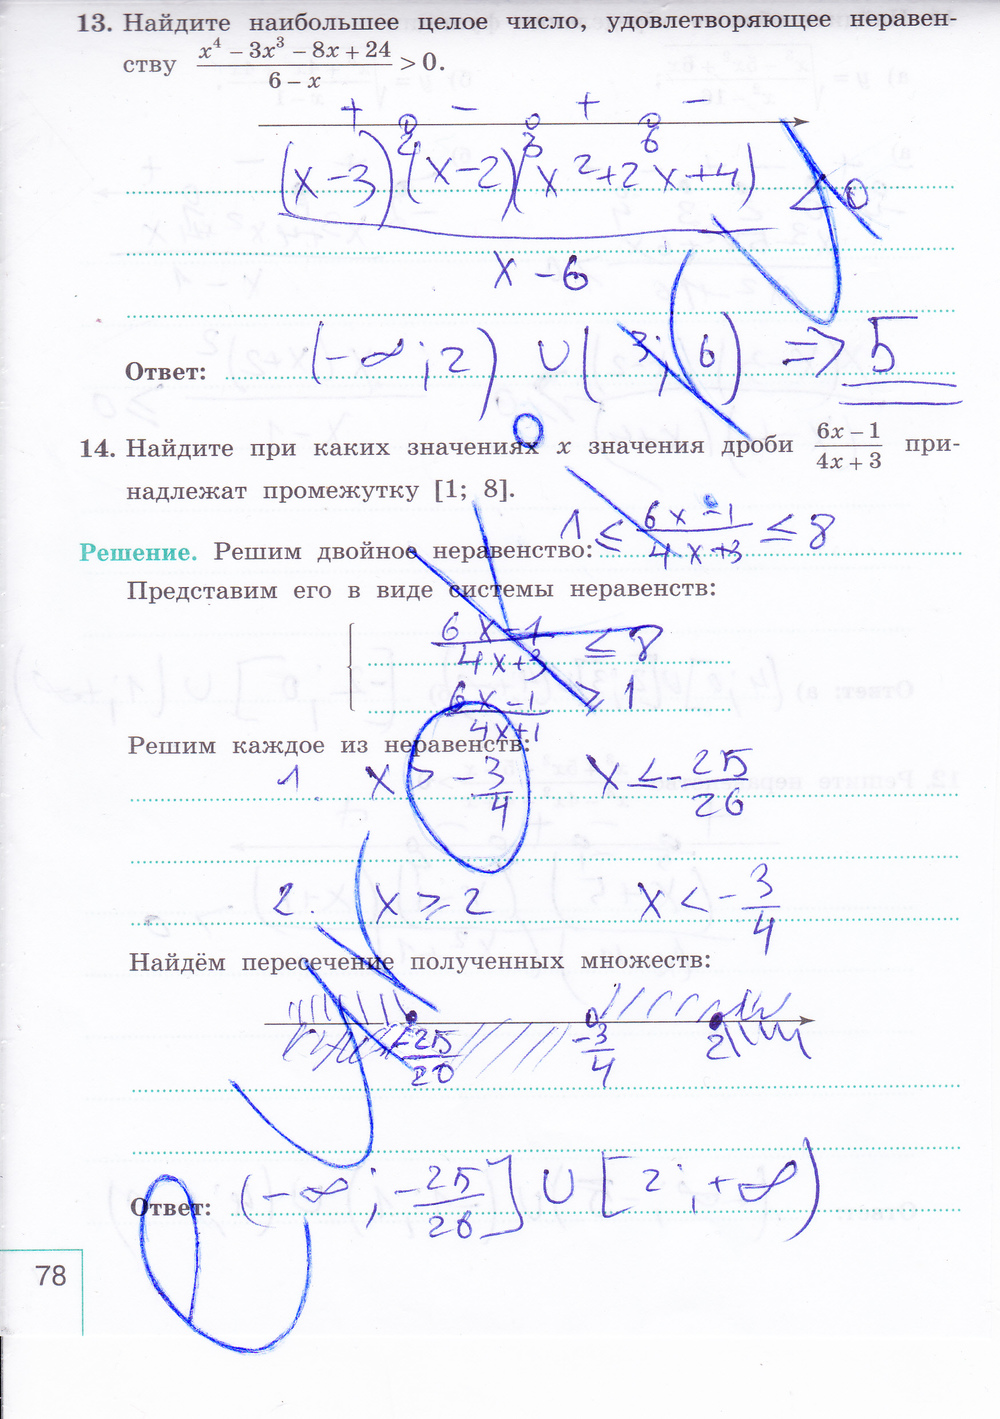 13. Найдите наибольшее целое число, удовлетворяющее неравен-
ству (x⁴ − 3x³ − 8x + 24)/(6 − x) > 0.
+ − + −
2 3 6
(x − 3)(x − 2)(x² + 2x + 4) < 0
x − 6
Ответ: (−∞; 2) ∪ (3; 6) => 5
14. Найдите при каких значениях x значения дроби (6x − 1)/(4x + 3) при-
надлежат промежутку [1; 8].
Решение. Решим двойное неравенство: 1 ≤ (6x − 1)/(4x + 3) ≤ 8
Представим его в виде системы неравенств:
(6x − 1)/(4x + 3) ≤ 8
(6x − 1)/(4x + 1) ≥ 1
Решим каждое из неравенств:
1. x > −3/4 x ≤ −25/26
2. x ≥ 2 x < −3/4
Найдём пересечение полученных множеств:
−25/26 −3/4 2
Ответ: (−∞; −25/26] ∪ [2; +∞)
78